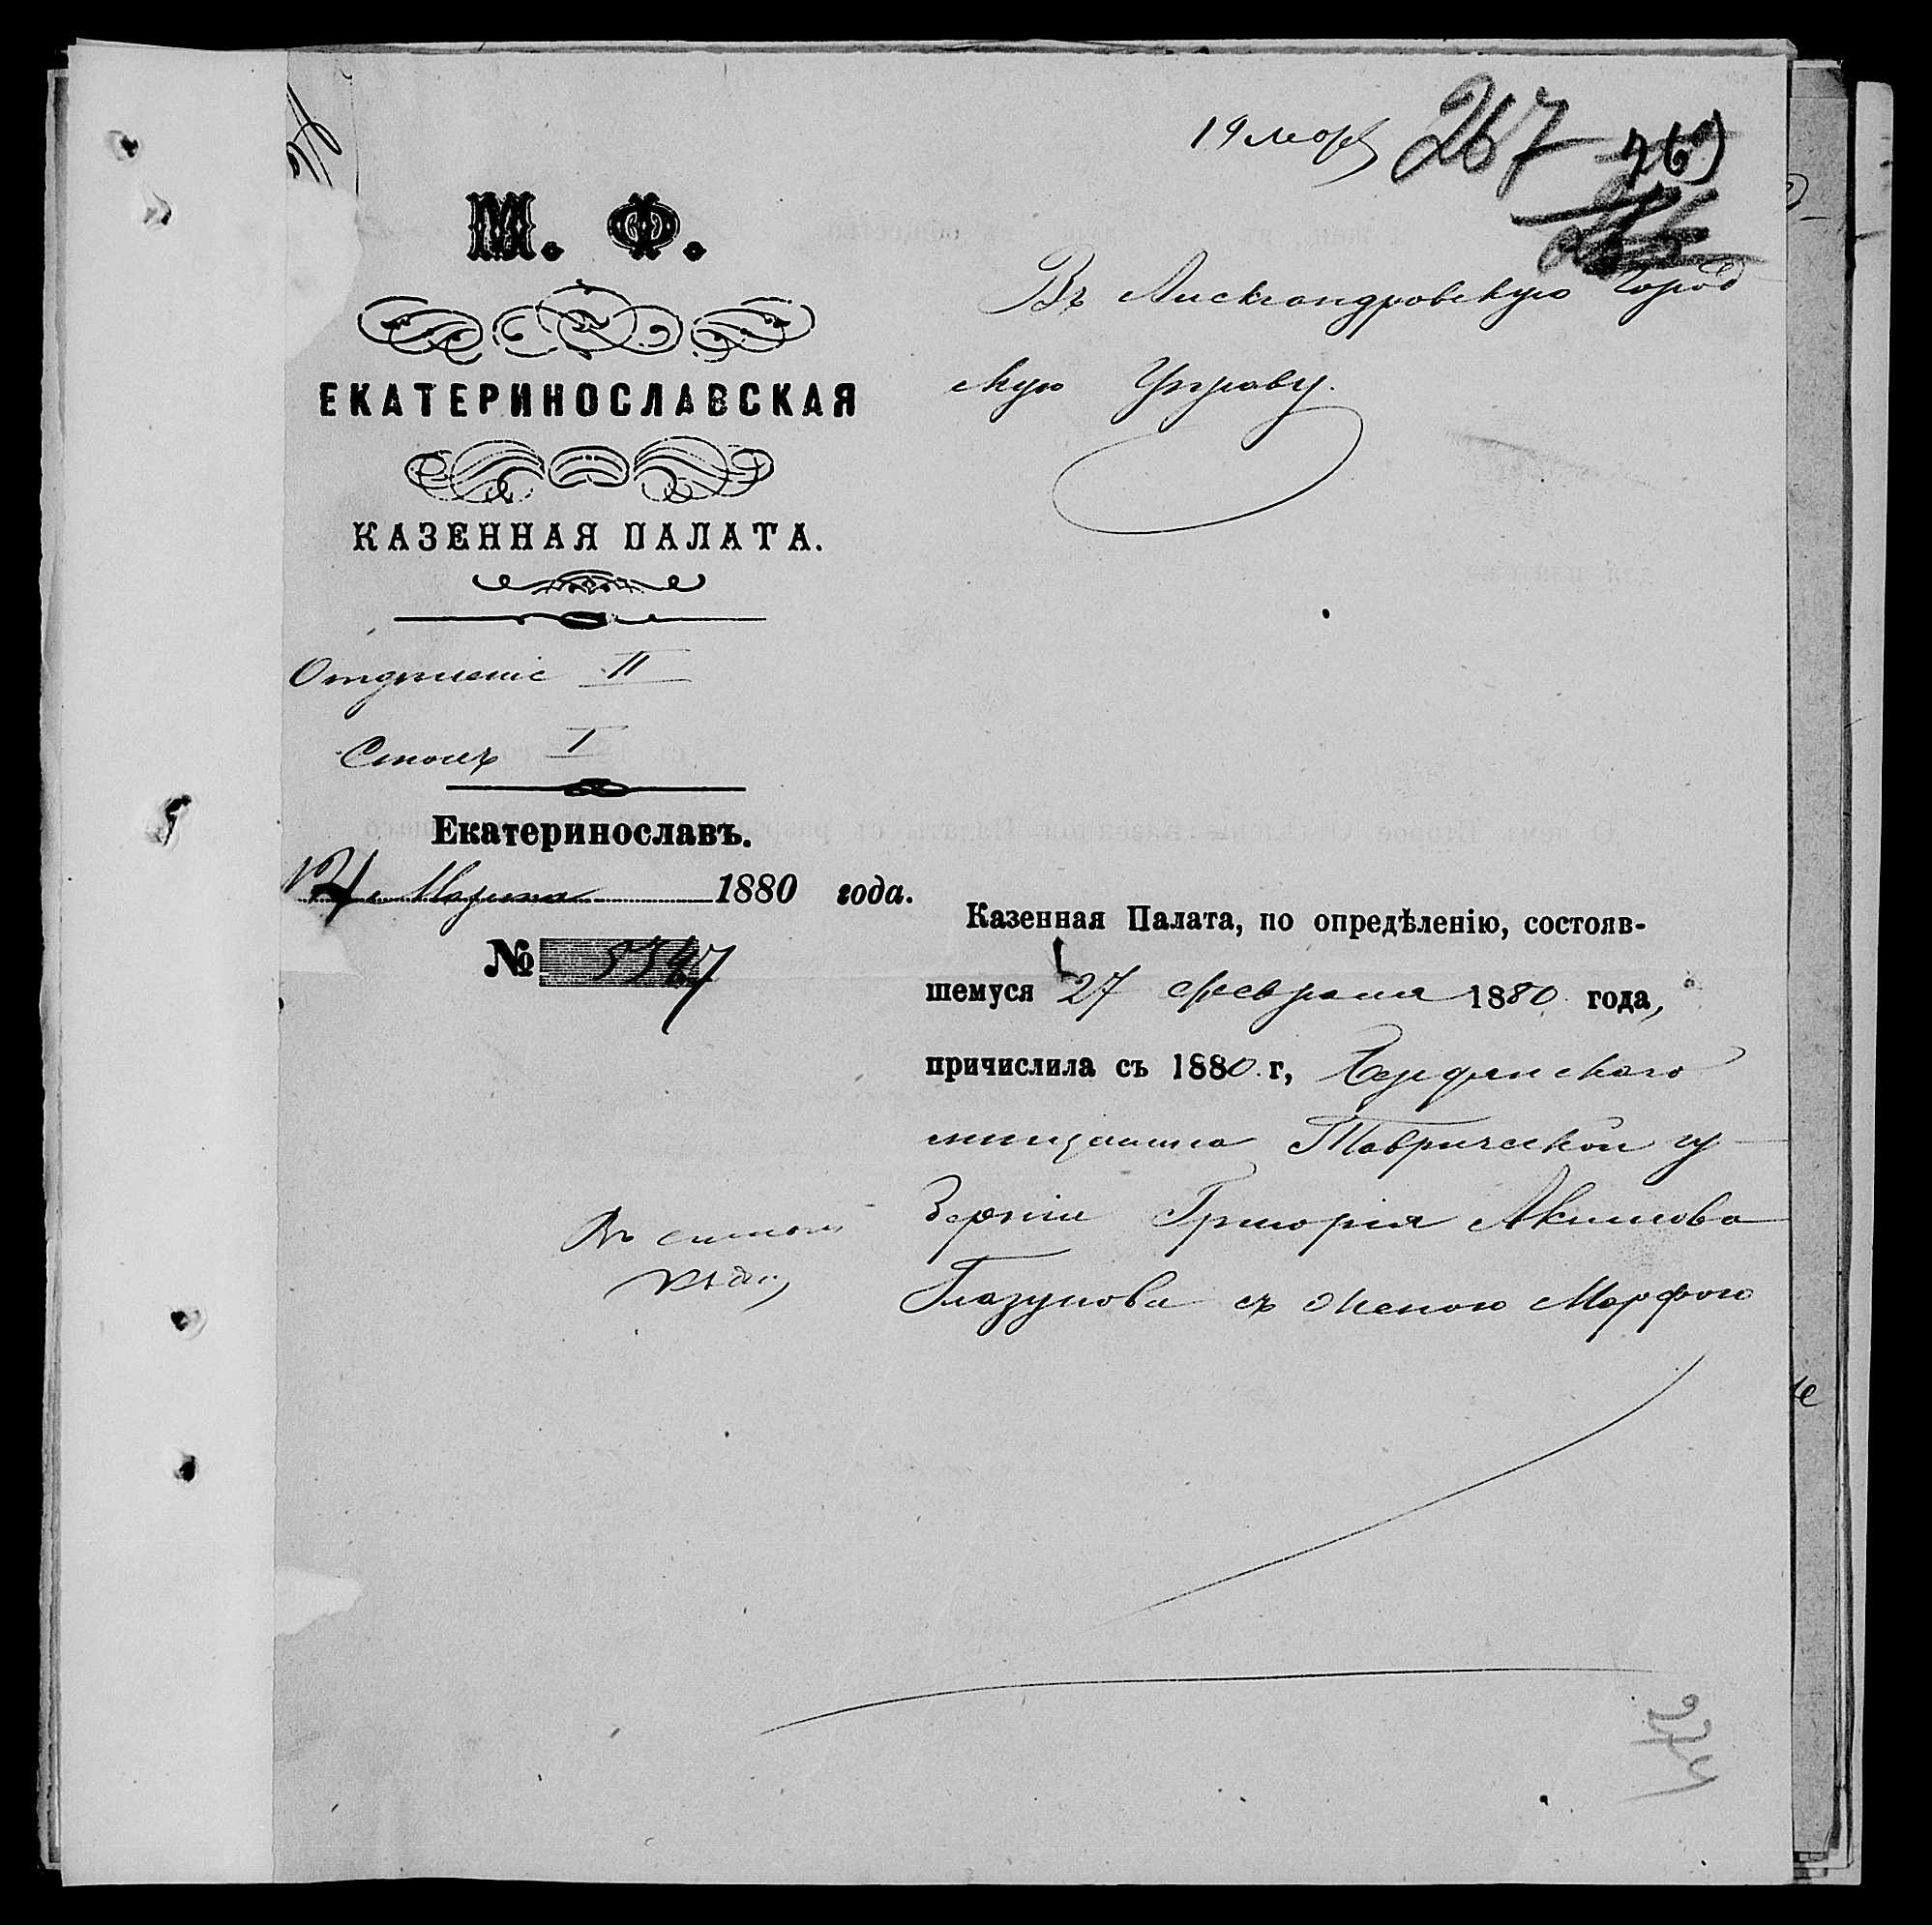 19 мар
267
769
М. Ф.
ЕКАТЕРИНОСЛАВСКАЯ
КАЗЕННАЯ ПАЛАТА.
Отдѣленіе II
Столъ I
Екатеринославъ.
Марта 1880 года.
№
Въ Александровскую Город
скую Управу.
Казенная Палата, по опредѣленію, состояв-
шемуся 27 февраля 1880 года,
причислила съ 1880 г, Бердянскаго
мѣщанина Таврической гу
берніи Григорія Акимова
Глазунова съ женою Марфою
274